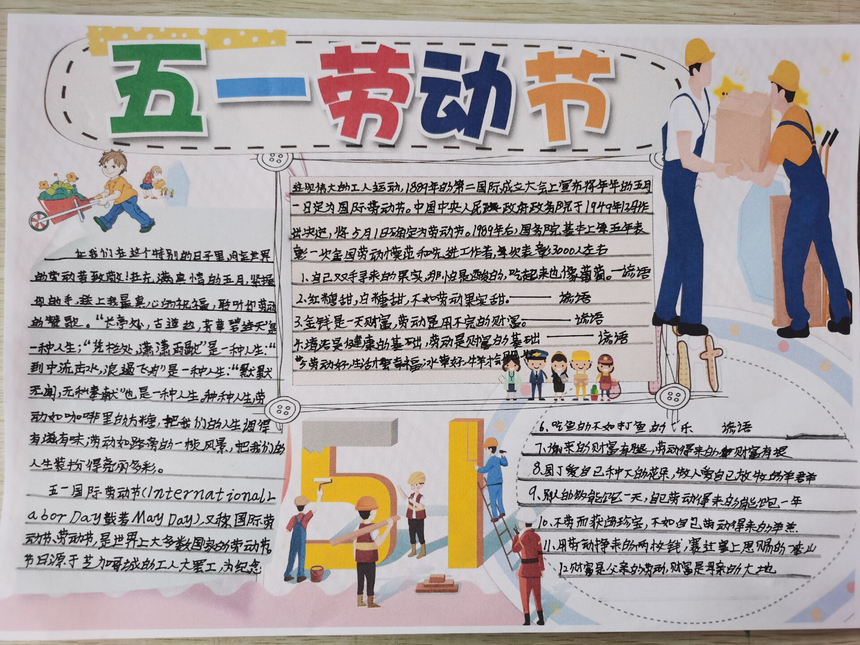 五一劳动节
让我们在这个特别的日子里,向全世界
的劳动者致敬!让在满且情的五月,紧握
母的手,送上我最真心的祝福,聆听世劳动
的赞歌。“长亭外,古道边,芳草碧连天”是
一种人生;“凭栏处,潇潇雨歇”是一种人生:“
到中流击水,浪遏飞舟”是一种人生:“默默
无闻,无私奉献”也是一种人生,种种人生,劳
动如咖啡里的方糖,把我们的人生调得
有滋有味,劳动如路旁的一枝风景,把我们的
人生装扮得亮丽多彩。
五一国际劳动节(International L
abor Day或者May Day),又称国际劳
动节、劳动节,是世界上大多数国家的劳动节,
节日源于芝加哥城的工人大罢工,为纪念
这现伟大的工人运动,1889年的第二国际成立大会上宣布将每年的五月
一日定为国际劳动节。中国中央人民政府政务院于1949年12月作
出决定,将5月1日确定为劳动节。1989年后,国务院基本上每五年表
彰一次全国劳动模范和先进工作者,每次表彰3000人左右
1.自己双手寻来的果实,那怕是酸的,吃起来也像葡萄。——谚语
2.红糖甜,白糖甜,不如劳动果实甜。——谚语
3.金钱是一天财富,劳动是用不完的财富。——谚语
4.清洁是健康的基础,劳动是财富的基础——谚语
劳动好生活才幸福,水
51
6.吃鱼的不如打鱼的乐 谚语
7.偷来的财富有腿,劳动得来的财富有根
8.园丁爱自己种下的花朵,牧人爱自己放牧的羊群
9.别人的能饱一天,自己劳动得来的能饱一年
10.不劳而获的珍宝,不如自己劳动得来的羊羔
11.用劳动挣来的两枚钱,赛过掌上恩赐的座山
12.财富是父亲的劳动,财富是母亲的大地